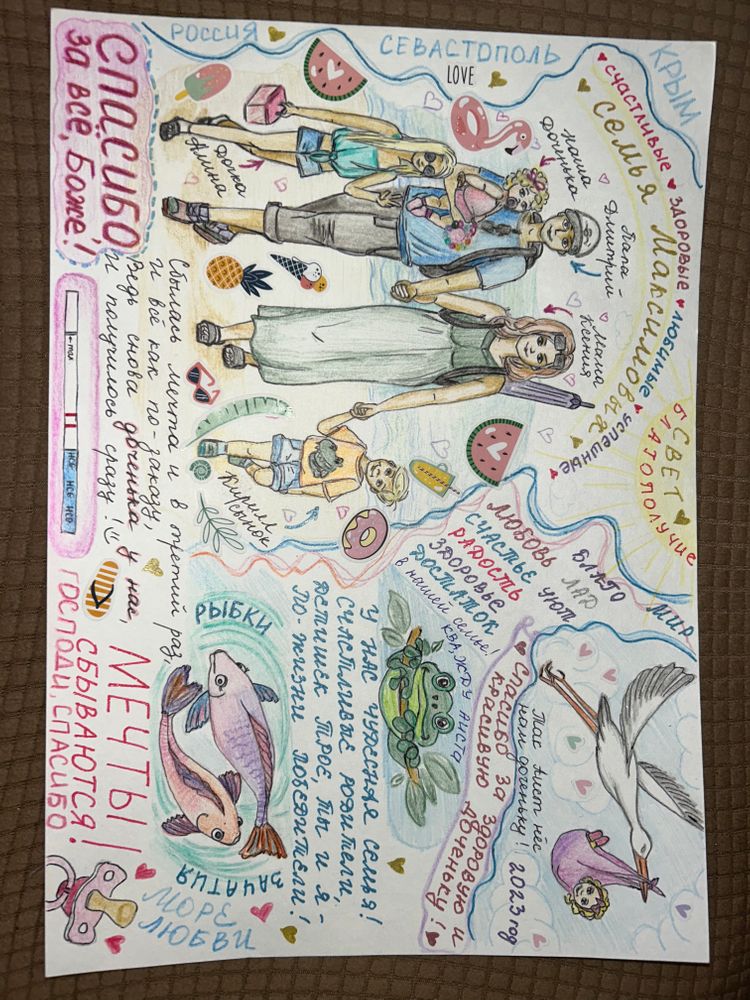 РОССИЯ
СЕВАСТОПОЛЬ
КРЫМ
LOVE
СЧАСТЛИВЫЕ ЗДОРОВЫЕ ЛЮБИМЫЕ УСПЕШНЫЕ
СЕМЬЯ МАКСИМОВЫХ
СВЕТ
БЛАГОПОЛУЧИЕ
МИР
СПАСИБО
ЗА ВСЁ, БОЖЕ!
Дочка
Алина
Наша
доченька
Папа-
Дмитрий
Мама
Ксения
Кирилл
сынок
Сбылась мечта и в третий раз,
И всё как по-заказу,
Ведь снова доченька у нас,
И получилось сразу!
НСЕ НСЕ НСЕ
ЛЮБОВЬ
СЧАСТЬЕ
РАДОСТЬ
ЗДОРОВЬЕ
ДОСТАТОК
в нашей семье!
БЛАГО
ЛАД
УЮТ
КВА, ЖДУ АИСТА
Спасибо за здоровую и
красивую доченьку!
Так Аист нёс
нам доченьку! 2023 год
У НАС ЧУДЕСНАЯ СЕМЬЯ!
СЧАСТЛИВЫЕ РОДИТЕЛИ,
ДЕТИШЕК ТРОЕ, ТЫ И Я -
ПО-ЖИЗНИ ПОБЕДИТЕЛИ!
РЫБКИ
ЗАЧАТИЯ
МЕЧТЫ
СБЫВАЮТСЯ!
ГОСПОДИ, СПАСИБО!
МОРЕ
ЛЮБВИ